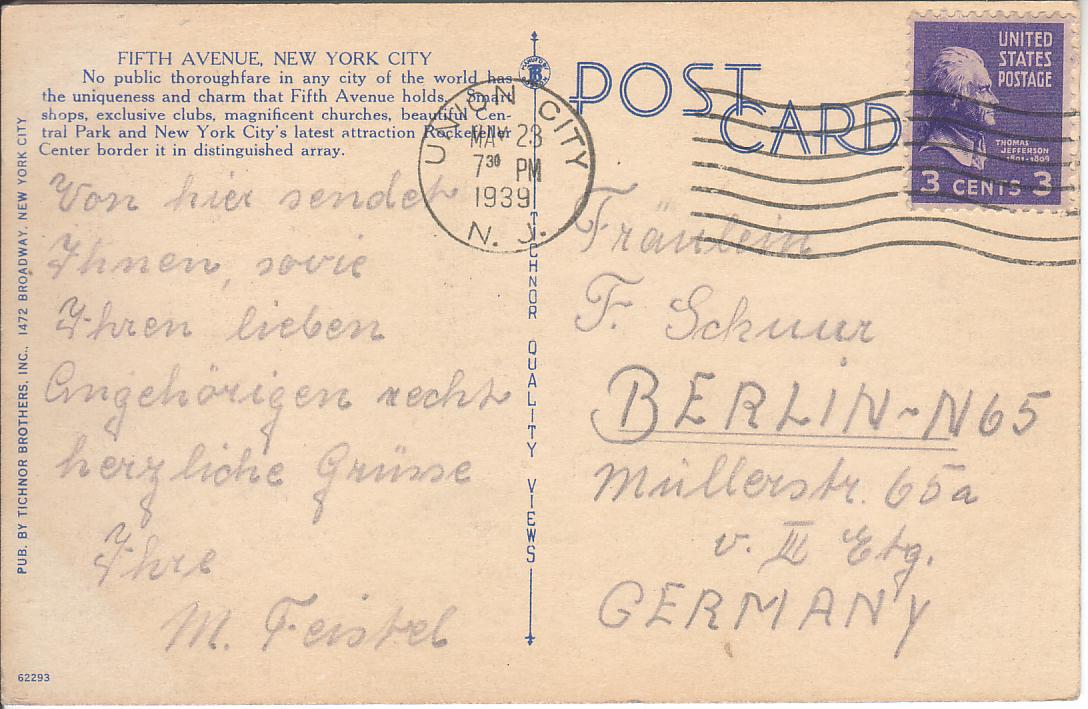 FIFTH AVENUE, NEW YORK CITY
No public thoroughfare in any city of the world has
the uniqueness and charm that Fifth Avenue holds. Smart
shops, exclusive clubs, magnificent churches, beautiful Cen-
tral Park and New York City's latest attraction Rockefeller
Center border it in distinguished array.
Von hier sendet
Ihnen, sowie
Ihren lieben
Angehörigen recht
herzliche Grüsse
Ihre
M. Feistel
62293
PUB. BY TICHNOR BROTHERS, INC., 1472 BROADWAY, NEW YORK CITY
TICHNOR QUALITY VIEWS
POST CARD
UNION CITY
MAY 23
7 30 PM
1939
N. J.
UNITED
STATES
POSTAGE
THOMAS
JEFFERSON
1801-1809
3 CENTS 3
Fräulein
F. Schuur
BERLIN-N65
Müllerstr. 65a
v. III Etg.
GERMANY